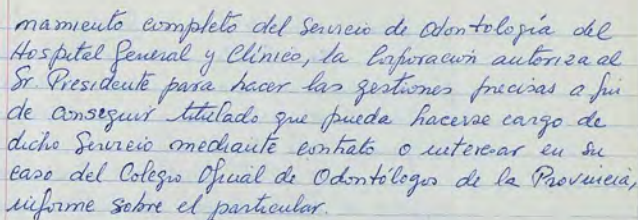 namiento completo del Servicio de Odontología del
Hospital General y Clínico, la Corporación autoriza al
Sr. Presidente para hacer las gestiones precisas a fin
de conseguir titulado que pueda hacerse cargo de
dicho Servicio mediante contrato o interesar en su
caso del Colegio Oficial de Odontólogos de la Provincia,
informe sobre el particular.